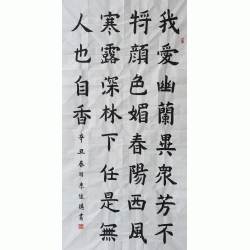 我愛幽蘭異衆芳不
将顔色媚春陽西風
寒露深林下任是無
人也自香
辛丑春月李俊橋書